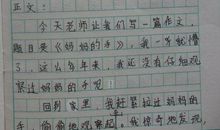 正文：
今天老师让我们写一篇作文，
题目是《妈妈的手》，我一听就懵
了，这么多年来，我还没有仔细观
察过妈妈的手呢！
回到家里，我赶紧拉过妈妈的
手，偷偷地观察起。我惊奇地发现，